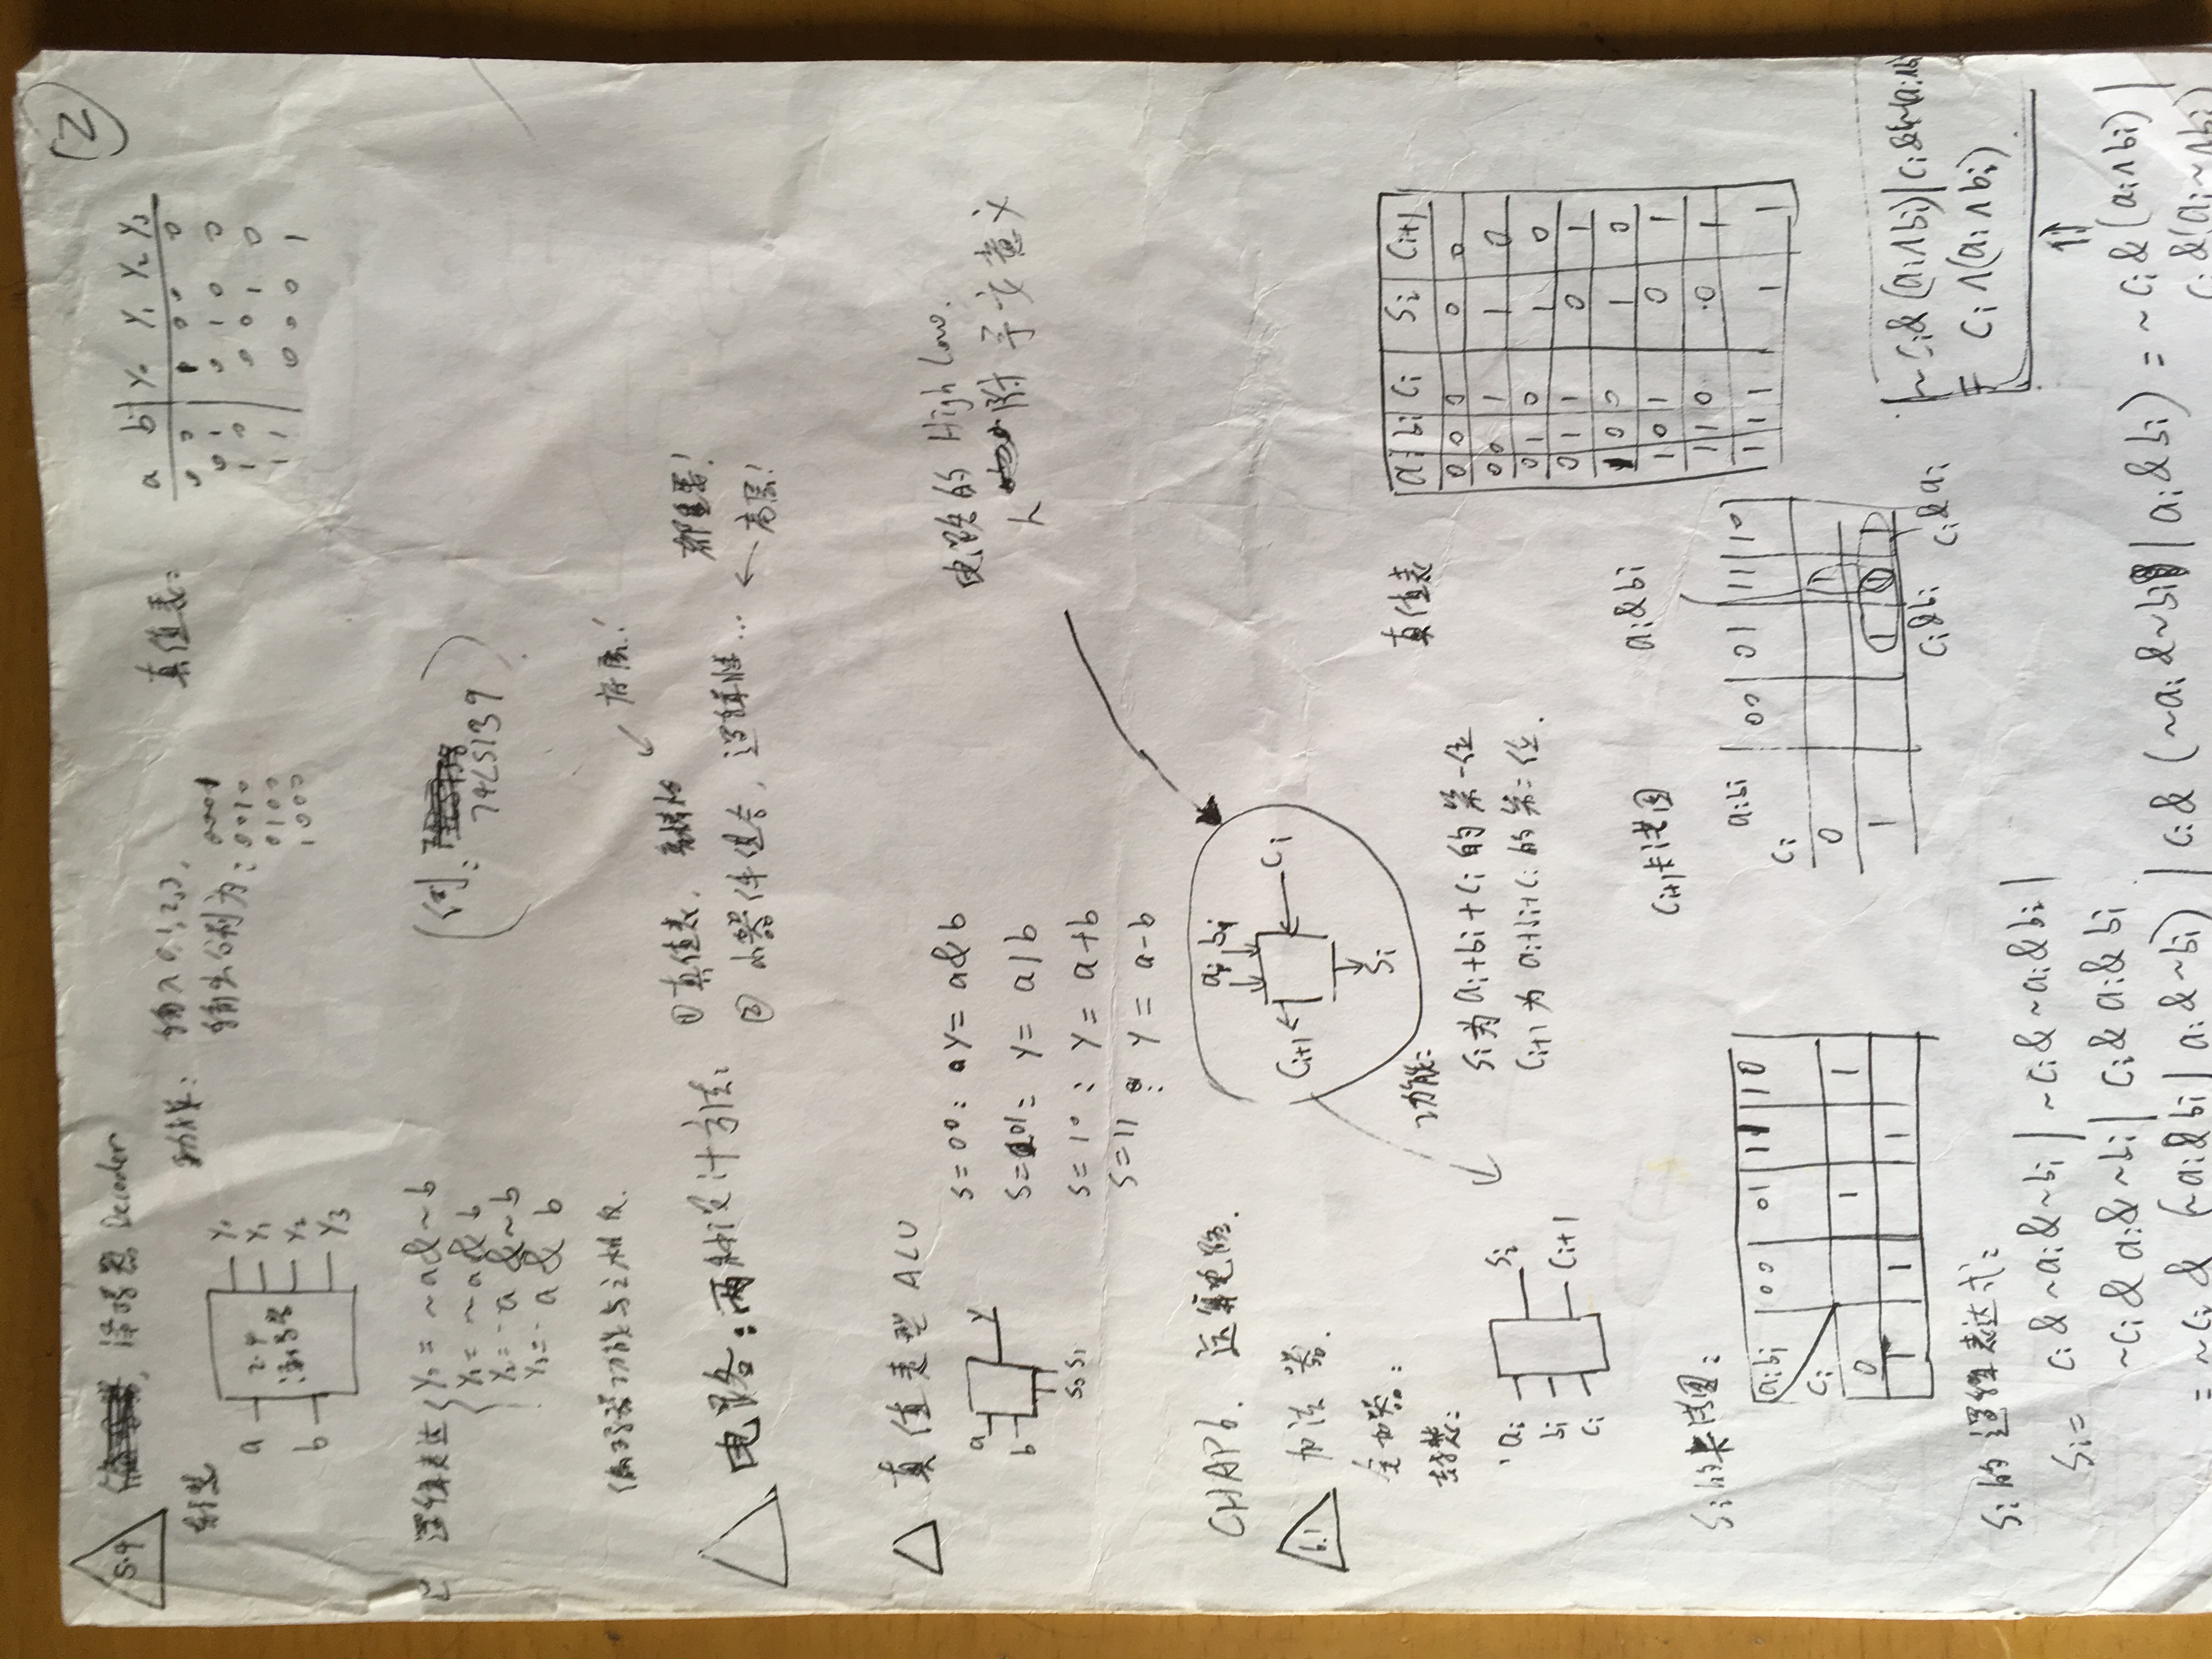 ②
5.4 译码器 Decoder
封装
a
b
2.4
译码器
Y₀
Y₁
Y₂
Y₃
功能: 输入0,1,2,3,
输出分别为:
0001
0010
0100
1000
真值表:
a b Y₀ Y₁ Y₂ Y₃
0 0 1 0 0 0
0 1 0 1 0 0
1 0 0 0 1 0
1 1 0 0 0 1
逻辑表达
Y₀ = ~a & ~b
Y₁ = ~a & b
Y₂ = a & ~b
Y₃ = a & b
(例: 74LS139)
编码器功能与之相反.
电路: 两种设计方法:
① 真值表,
底层!
② 小器件组合, 逻辑性... ← 高层!
都重要!
真值表型 ALU
a
b
Y
S₀ S₁
S=00: Y= a&b
S=01: Y= a|b
S=10: Y= a+b
S=11: Y= a-b
电路的 High Low.
人 附予它意义
CHAP6. 运算电路.
6.1 加法器.
aᵢ bᵢ
Cᵢ₊₁
Cᵢ
Sᵢ
全加器:
封装:
aᵢ
bᵢ
cᵢ
Sᵢ
Cᵢ₊₁
功能:
Sᵢ为 aᵢ+bᵢ+cᵢ 的第一位
Cᵢ₊₁为 aᵢ+bᵢ+cᵢ 的第二位.
真值表
aᵢ bᵢ Cᵢ Sᵢ Cᵢ₊₁
0 0 0 0 0
0 0 1 1 0
0 1 0 1 0
0 1 1 0 1
1 0 0 1 0
1 0 1 0 1
1 1 0 0 1
1 1 1 1 1
Sᵢ的卡诺图:
aᵢbᵢ 00 01 11 10
Cᵢ
0 1 1
1 1 1
Cᵢ₊₁卡诺图
aᵢ&bᵢ
aᵢbᵢ 00 01 11 10
Cᵢ
0 1
1 1 1 1
Cᵢ&bᵢ
Cᵢ&aᵢ
~Cᵢ&(aᵢ∧bᵢ)|Cᵢ&~(aᵢ∧bᵢ)
= Cᵢ∧(aᵢ∧bᵢ)
Sᵢ的逻辑表达式:
Sᵢ= Cᵢ&~aᵢ&~bᵢ | ~Cᵢ&~aᵢ&bᵢ |
~Cᵢ&aᵢ&~bᵢ | Cᵢ&aᵢ&bᵢ
= ~Cᵢ & (~aᵢ&bᵢ | aᵢ&~bᵢ) | Cᵢ & (~aᵢ&~bᵢ | aᵢ&bᵢ) = ~Cᵢ&(aᵢ∧bᵢ) |